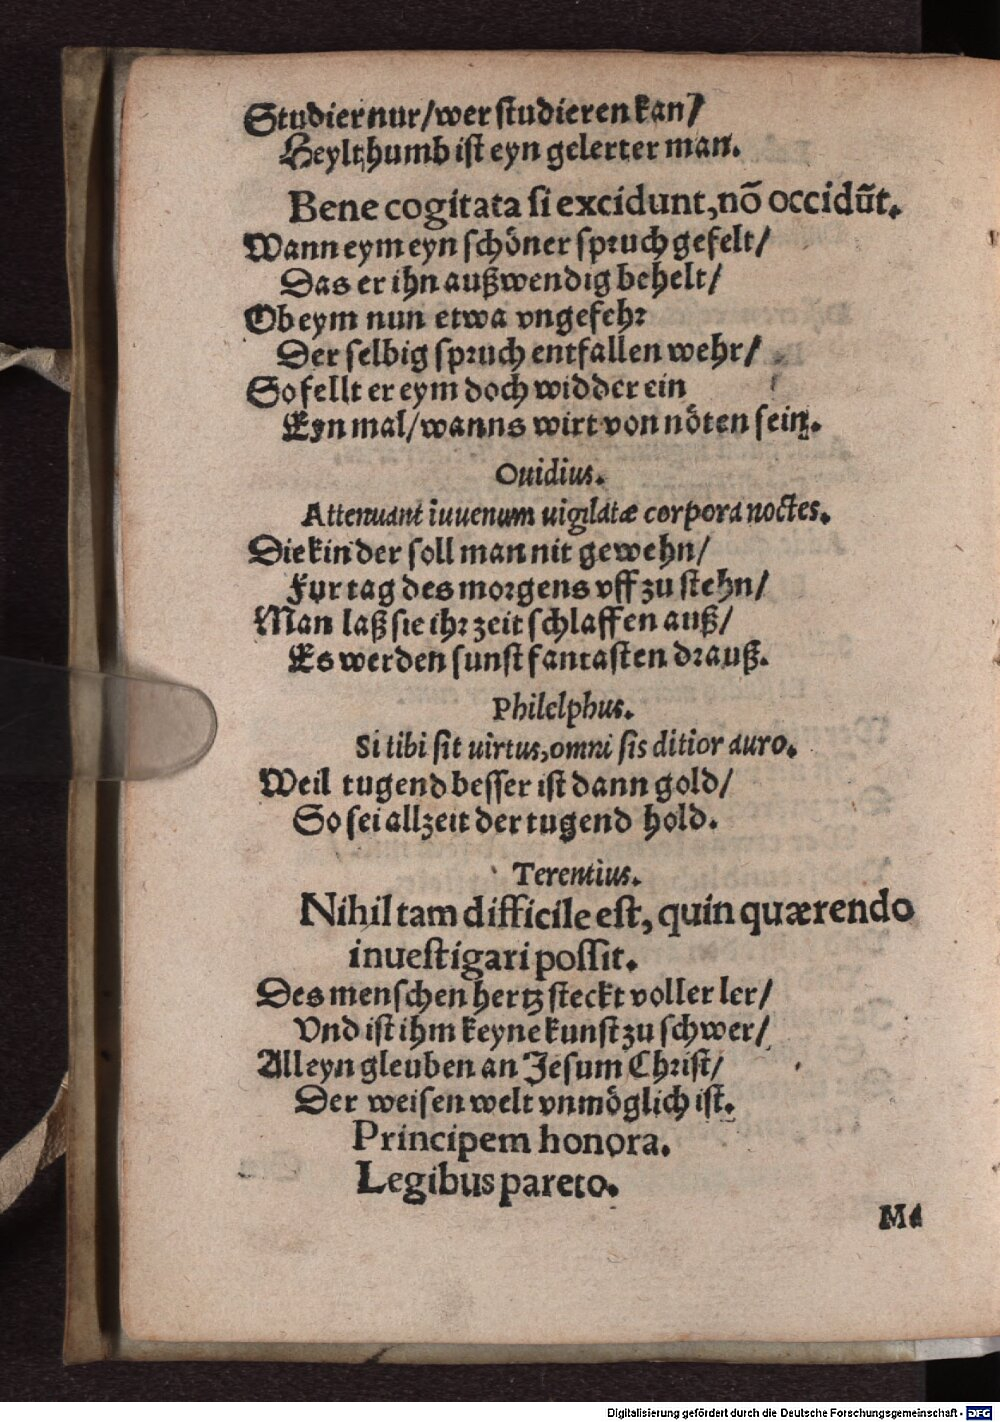 Studier nur/wer studieren kan/
Heylthumb ist eyn gelerter man.
Bene cogitata si excidunt, nõ occidũt.
Wann eym eyn schöner spruch gefelt/
Das er ihn außwendig behelt/
Ob eym nun etwa vngefehr
Der selbig spruch entfallen wehr/
So fellt er eym doch widder ein
Eyn mal/wanns wirt von nöten sein.
Ouidius.
Attenuant iuuenum uigilatæ corpora noctes.
Die kinder soll man nit gewehn/
Fur tag des morgens vff zu stehn/
Man laß sie ihr zeit schlaffen auß/
Es werden sunst fantasten drauß.
Philelphus.
Si tibi sit uirtus, omni sis ditior auro.
Weil tugend besser ist dann gold/
So sei allzeit der tugend hold.
Terentius.
Nihil tam difficile est, quin quærendo
inuestigari possit.
Des menschen hertz steckt voller ler/
Vnd ist ihm keyne kunst zu schwer/
Alleyn gleuben an Jesum Christ/
Der weisen welt vnmöglich ist.
Principem honora.
Legibus pareto.
Ma
Digitalisierung gefördert durch die Deutsche Forschungsgemeinschaft - DFG